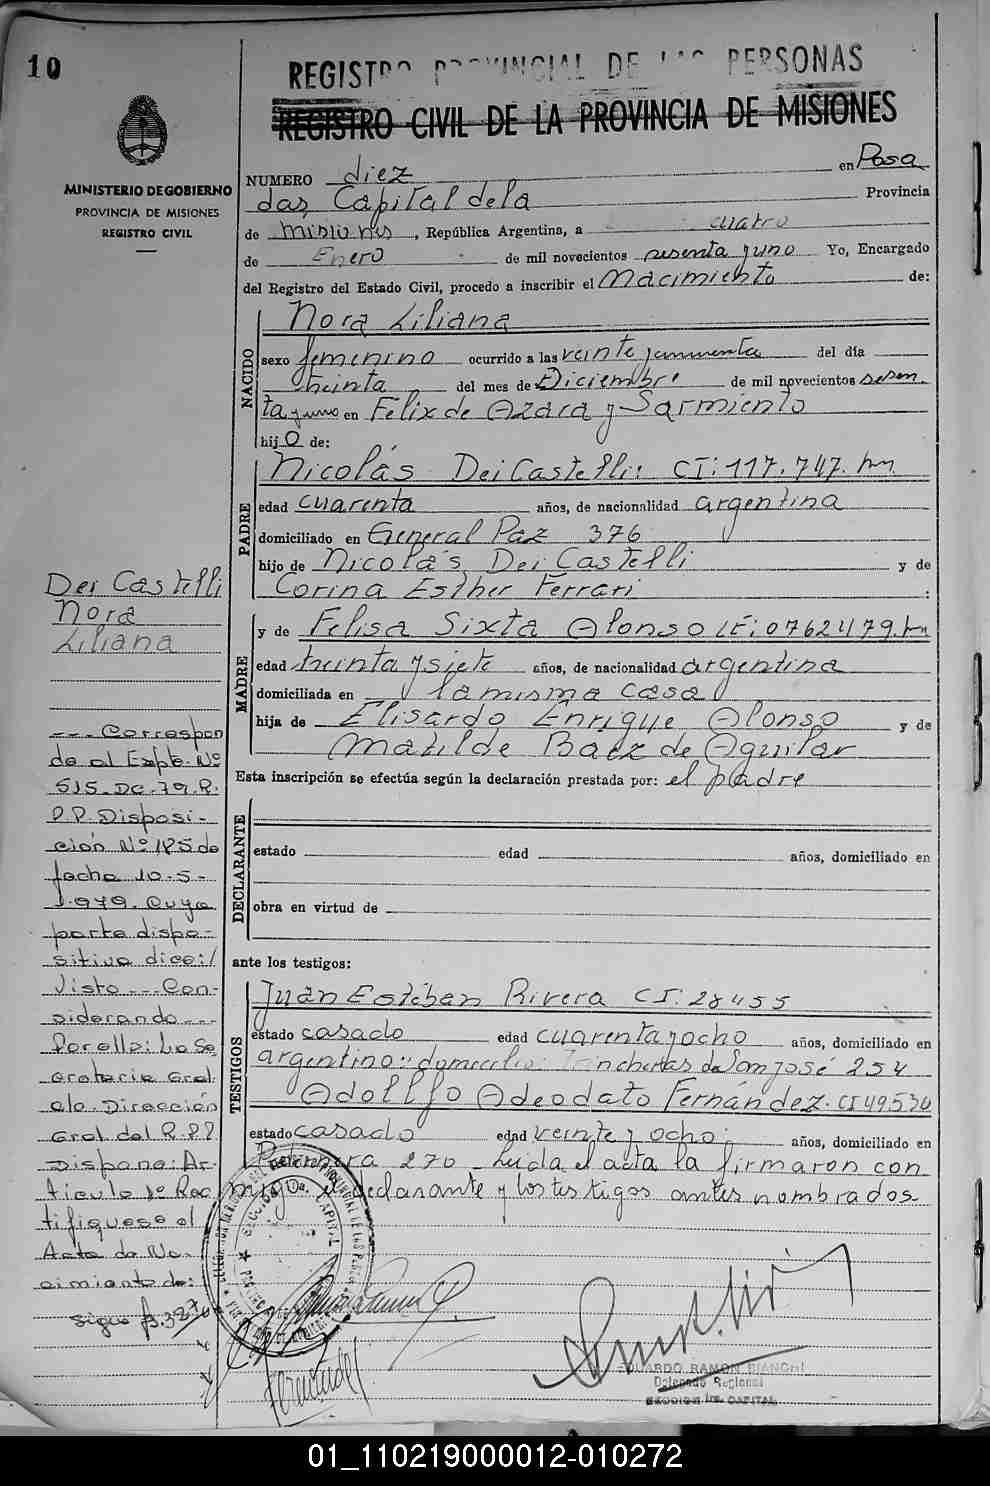 10
REGISTRO PROVINCIAL DE LAS PERSONAS
REGISTRO CIVIL DE LA PROVINCIA DE MISIONES
MINISTERIO DE GOBIERNO
PROVINCIA DE MISIONES
REGISTRO CIVIL
NUMERO diez en Posa
das, Capital dela Provincia
de Misiones, República Argentina, a cuatro
de Enero de mil novecientos sesenta y uno Yo, Encargado
del Registro del Estado Civil, procedo a inscribir el Nacimiento de:
NACIDO
Nora Liliana
sexo femenino ocurrido a las veinte y cuarenta del día
treinta del mes de Diciembre de mil novecientos sesen
ta y uno en Felix de Azara y Sarmiento
hijo de:
PADRE
Nicolás Dei Castelli: CI: 117.747.
edad cuarenta años, de nacionalidad argentina
domiciliado en General Paz 376
hijo de Nicolás Dei Castelli y de
Corina Esther Ferrari :
MADRE
y de Felisa Sixta Alonso LE: 0762479.
edad treinta y siete años, de nacionalidad argentina
domiciliada en la misma casa
hija de Elisardo Enrique Alonso y de
Matilde Baez de Aguilar
Esta inscripción se efectúa según la declaración prestada por: el padre
DECLARANTE
estado edad años, domiciliado en
obra en virtud de
ante los testigos:
TESTIGOS
Juán Estéban Rivera CI: 28455
estado casado edad cuarenta y ocho años, domiciliado en
argentino: domicilio: Trincheras de San José 254
Adolfo Adeodato Fernández. CI 49534
estado casado edad veinte y ocho: años, domiciliado en
270 - Leida el acta la firmaron con
migo el declarante y los testigos antes nombrados-
Dei Castelli
Nora
Liliana
--- Correspon
de al Expte. Nº
515-DC-79.R.
P.P. Disposi-
ción Nº 185 de
fecha 10-5-
1.979. Cuya
parte dispo-
sitiva dice:/
Visto --- Con-
siderando ---
Por ello: La Se
cretaria Gral
a/c. Dirección
Gral del R.P.P
Dispone: Ar-
tículo 1º Rec
tifiquese el
Acta de Na-
cimiento de:
sigue
EDUARDO RAMON BIANCHI
Delegado Regional
SECCION 1ra. CAPITAL
01_110219000012-010272